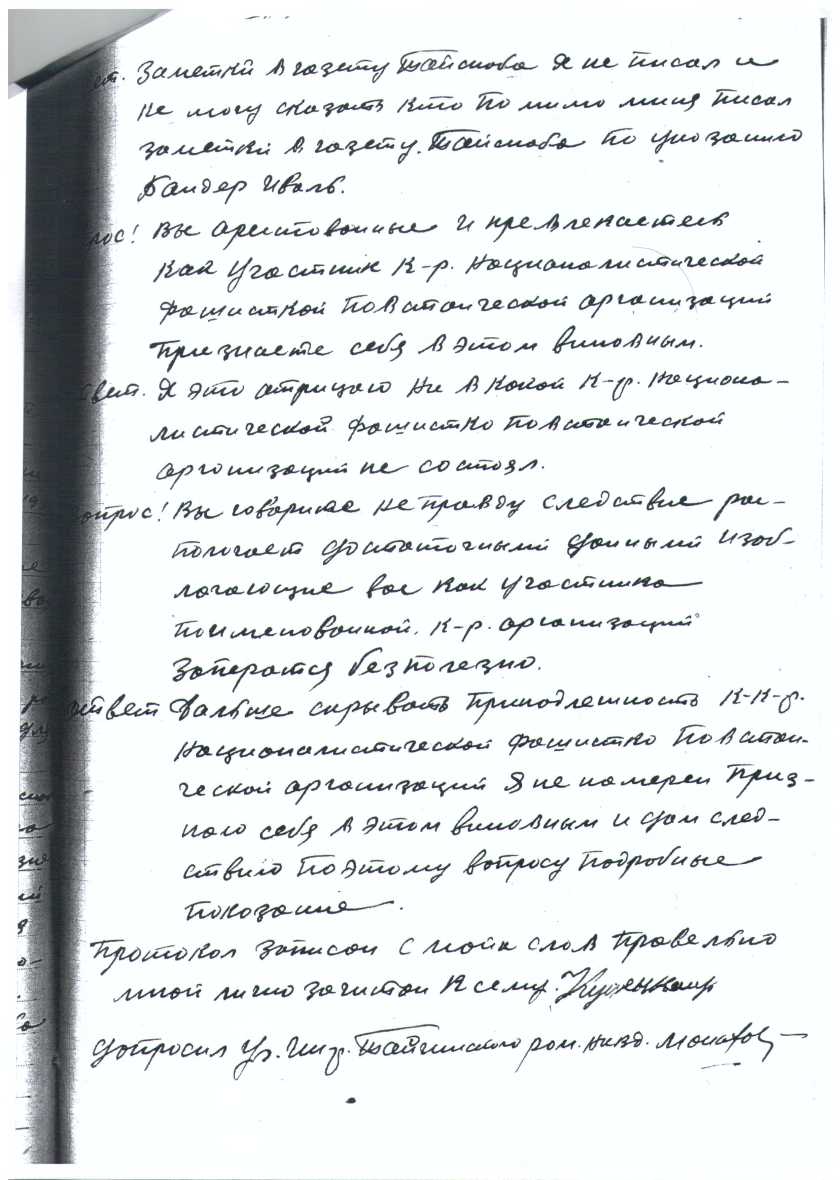 ет. Заметки в газету Тайснаба я не писал и
не могу сказать кто помимо меня писал
заметки в газету Тайснаба по указанию
Бандер Иваль.
рос! Вы арестованные и превлекаетесь
как участник к-р. националистической
фашисткой повстанческой организаций
признаете себя в этом виновным.
вет. Я это атрицаю ни в какой к-р. национа-
листической фашистко повстанческой
организаций не состоял.
опрос! Вы говорите не правду следствие рас-
пологает достаточными данными изоб-
лагающие вас как участника
поименованной к-р. организаций
заператся безполезно.
ответ Дальше скрывать принадлешность к к-р.
националистической фашистко повстан-
ческой организаций я не намерен приз-
наю себя в этом виновным и дам след-
ствию поэтому вопросу подробные
показание.
Протокол записан с моих слов правельно
мной лично зачитан к сему.
Допросил Уч. Инсп. Тайгинского ром. нквд.